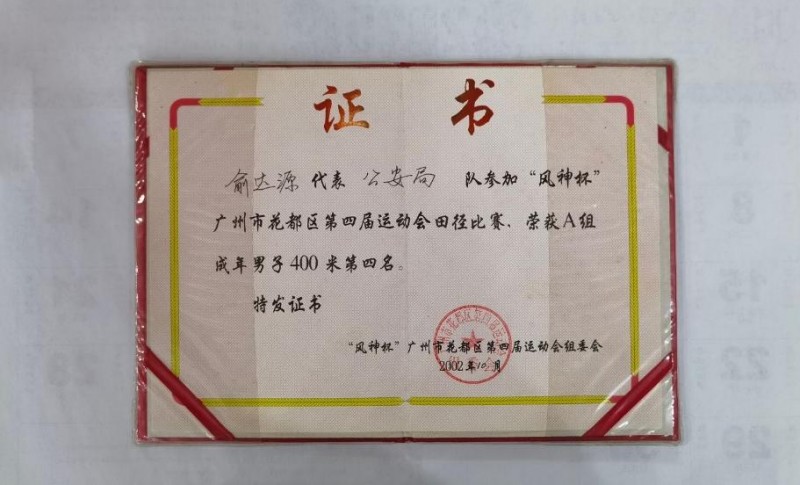 证书
俞达源代表公安局 队参加“风神杯”
广州市花都区第四届运动会田径比赛、荣获A组
成年男子400米第四名。
特发证书
“风神杯”广州市花都区第四届运动会组委会
2002年10月